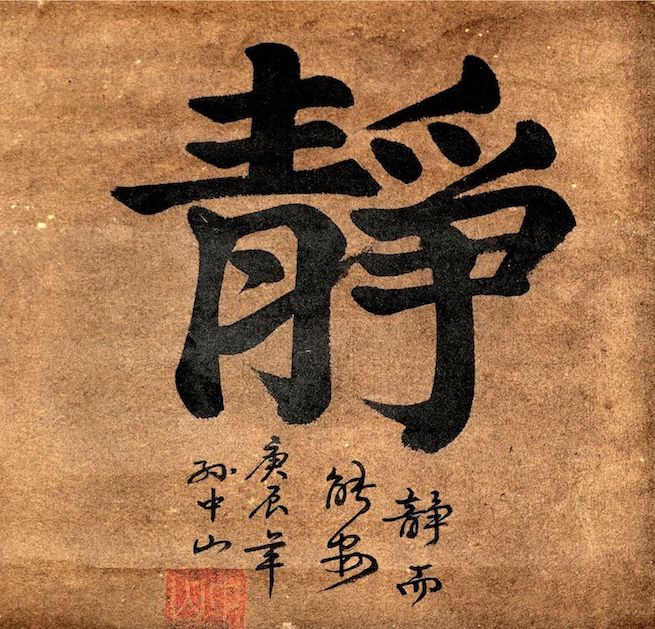 靜
靜而
能安
庚辰年
孫中山